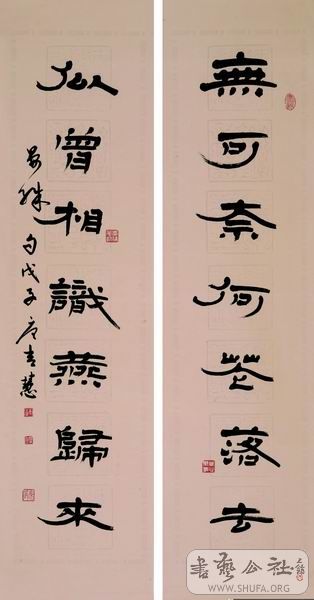 無可奈何花落去
似曾相識燕歸來
晏殊句戊子唐吉慧
書藝公社
WWW.SHUFA.ORG